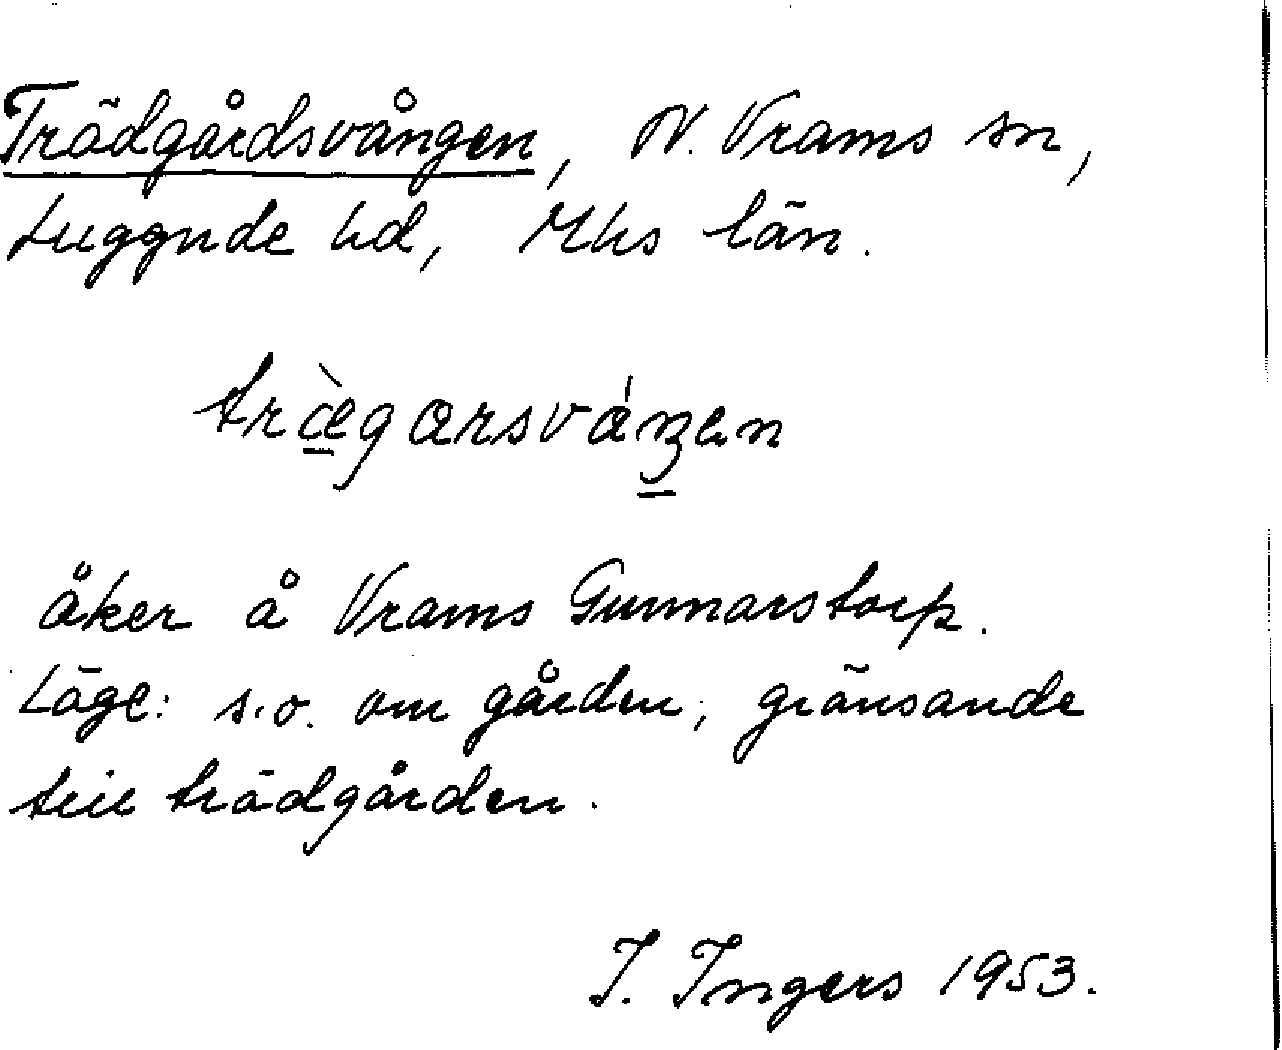 Trädgårdsvången, N. Vrams sn,
Luggude hd, Mhs län.
trægarsváŋen
åker å Vrams Gunnarstorp.
Läge: s.o. om gården, gränsande
till trädgården.
I. Ingers 1953.